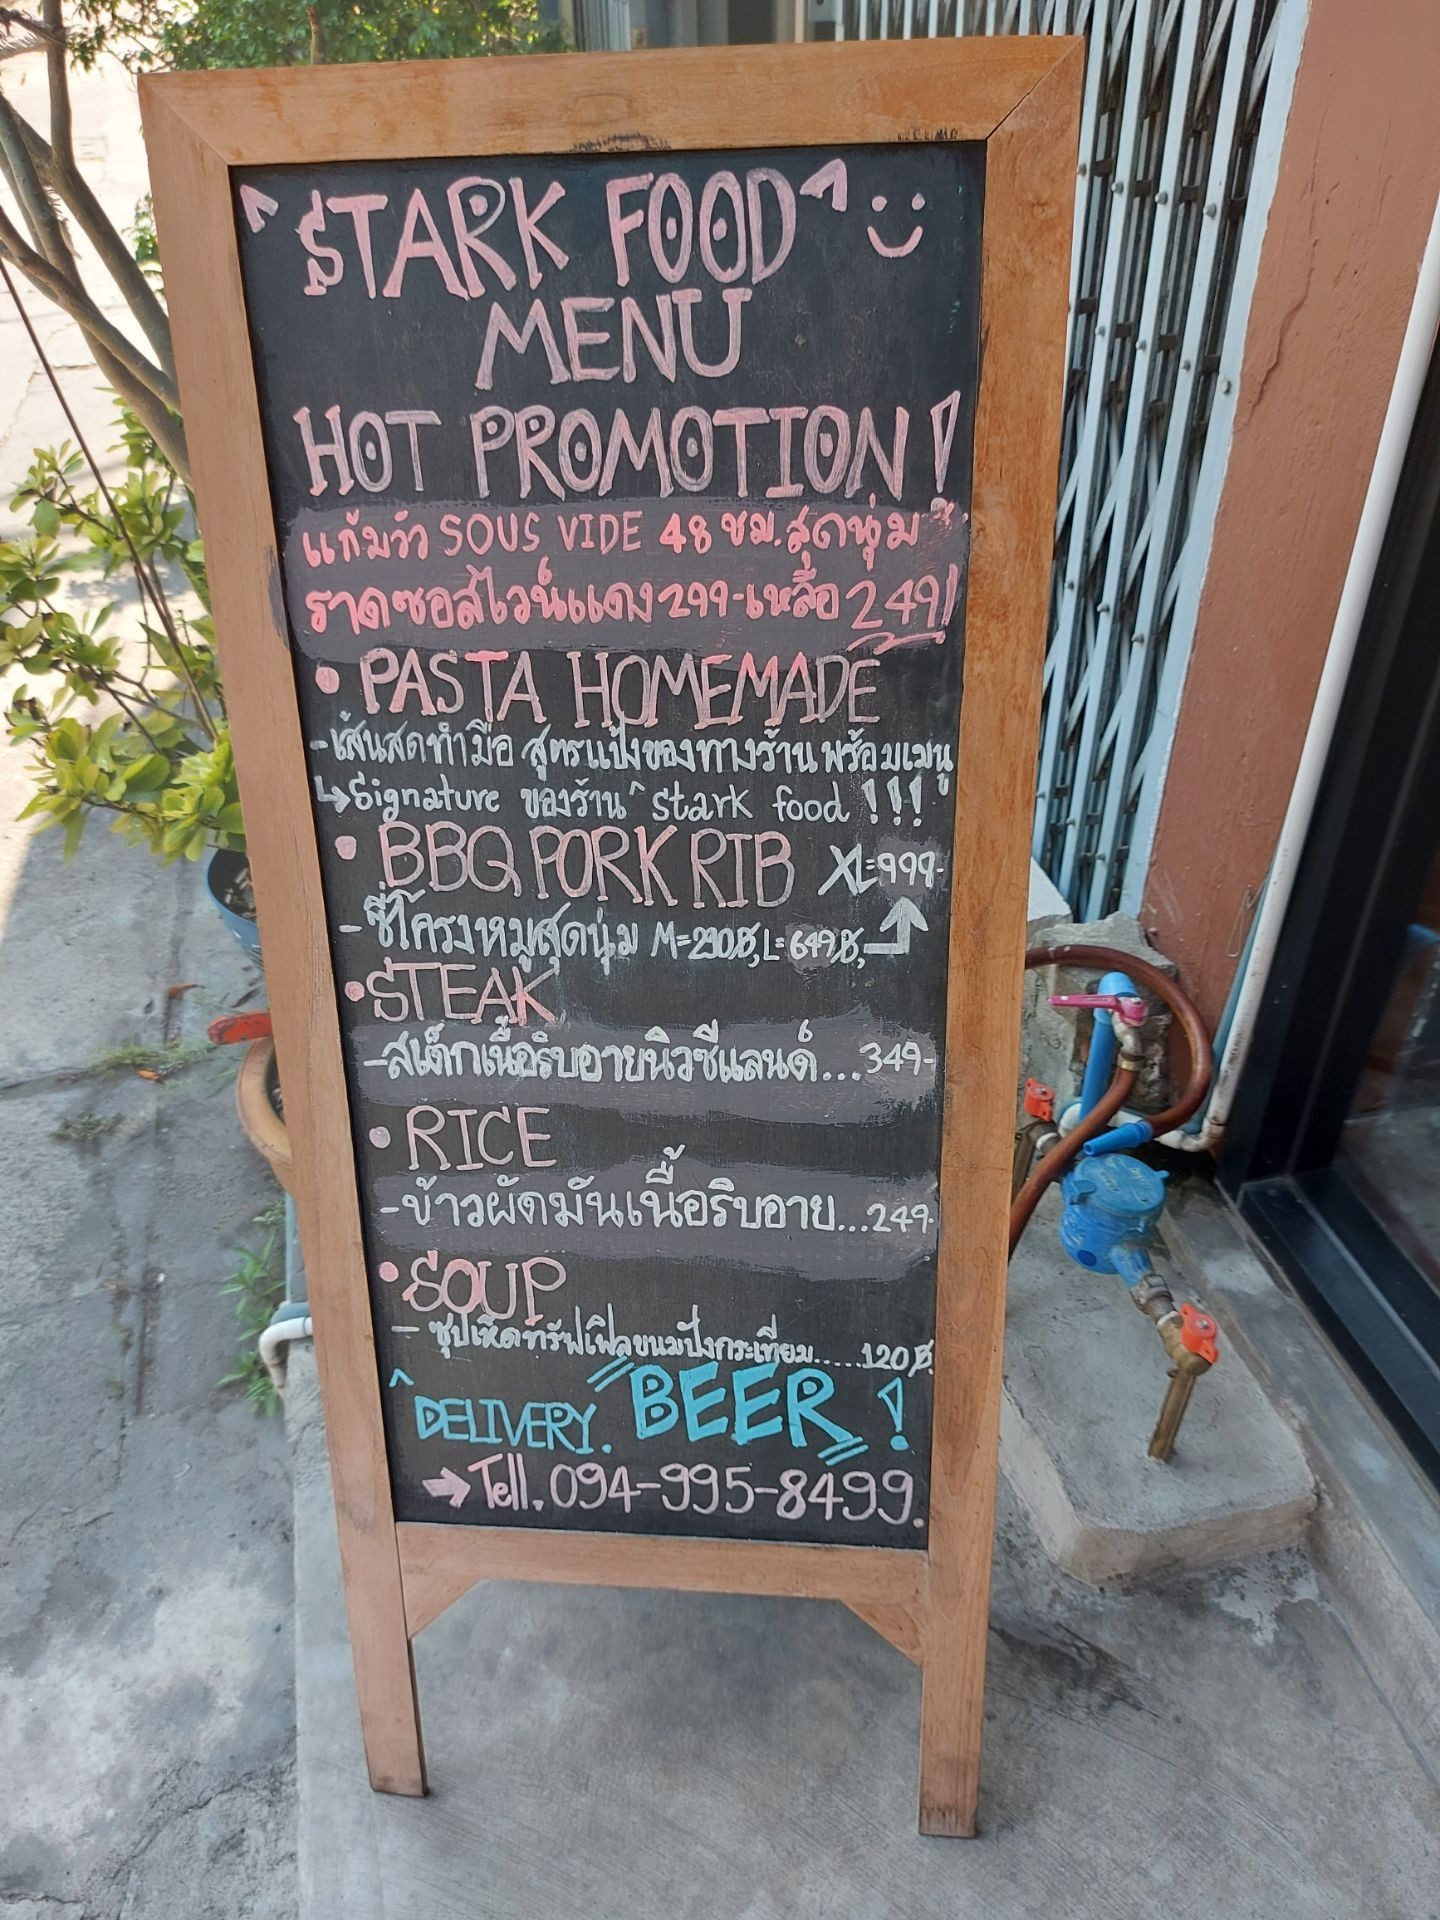 ^STARK FOOD^
MENU
HOT PROMOTION!
แก้มวัว SOUS VIDE 48 ชม. สุดนุ่ม
ราดซอสไวน์แดง 299- เหลือ 249!
• PASTA HOMEMADE
- เส้นสดทำมือ สูตรแป้งของทางร้าน พร้อมเมนู
↳ Signature ของร้าน ^ stark food !!!
• BBQ PORK RIB XL=999-
- ซี่โครงหมูสุดนุ่ม M=290฿, L=649฿,
• STEAK
- สเต็กเนื้อริบอายนิวซีแลนด์...349-
• RICE
- ข้าวผัดมันเนื้อริบอาย...249-
• SOUP
- ซุปเห็ดทรัฟเฟิลขนมปังกระเทียม.....120฿
^DELIVERY. "BEER!
→ Tell. 094-995-8499.